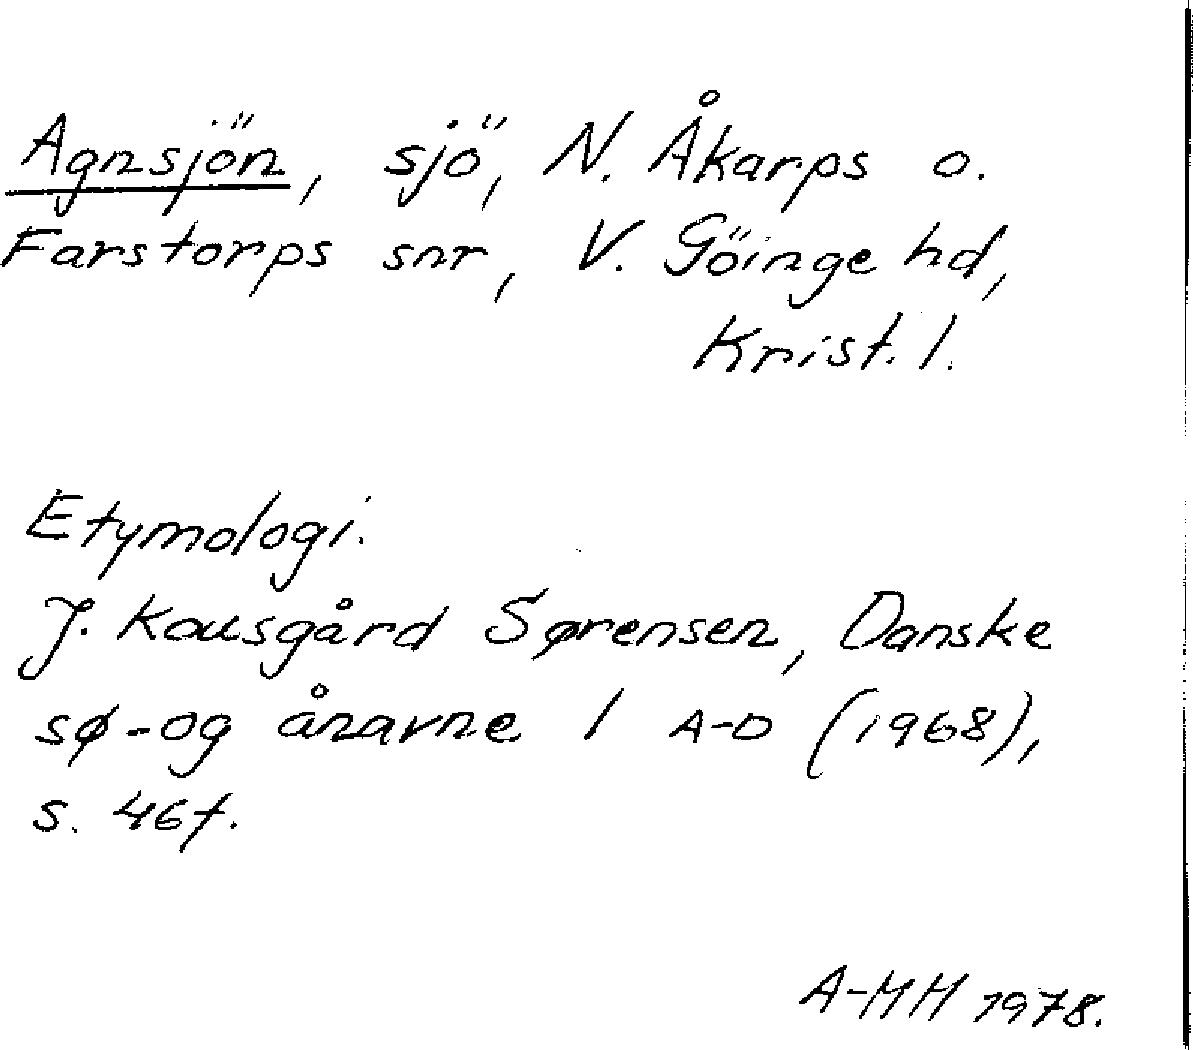 Agnsjön, sjö, N. Åkarps o.
Farstorps snr, V. Göinge hd,
Krist. l.
Etymologi.
J. Kousgård Sørensen, Danske
sø- og ånavne 1 A-D (1968),
s. 46f.
A-MH 1978.